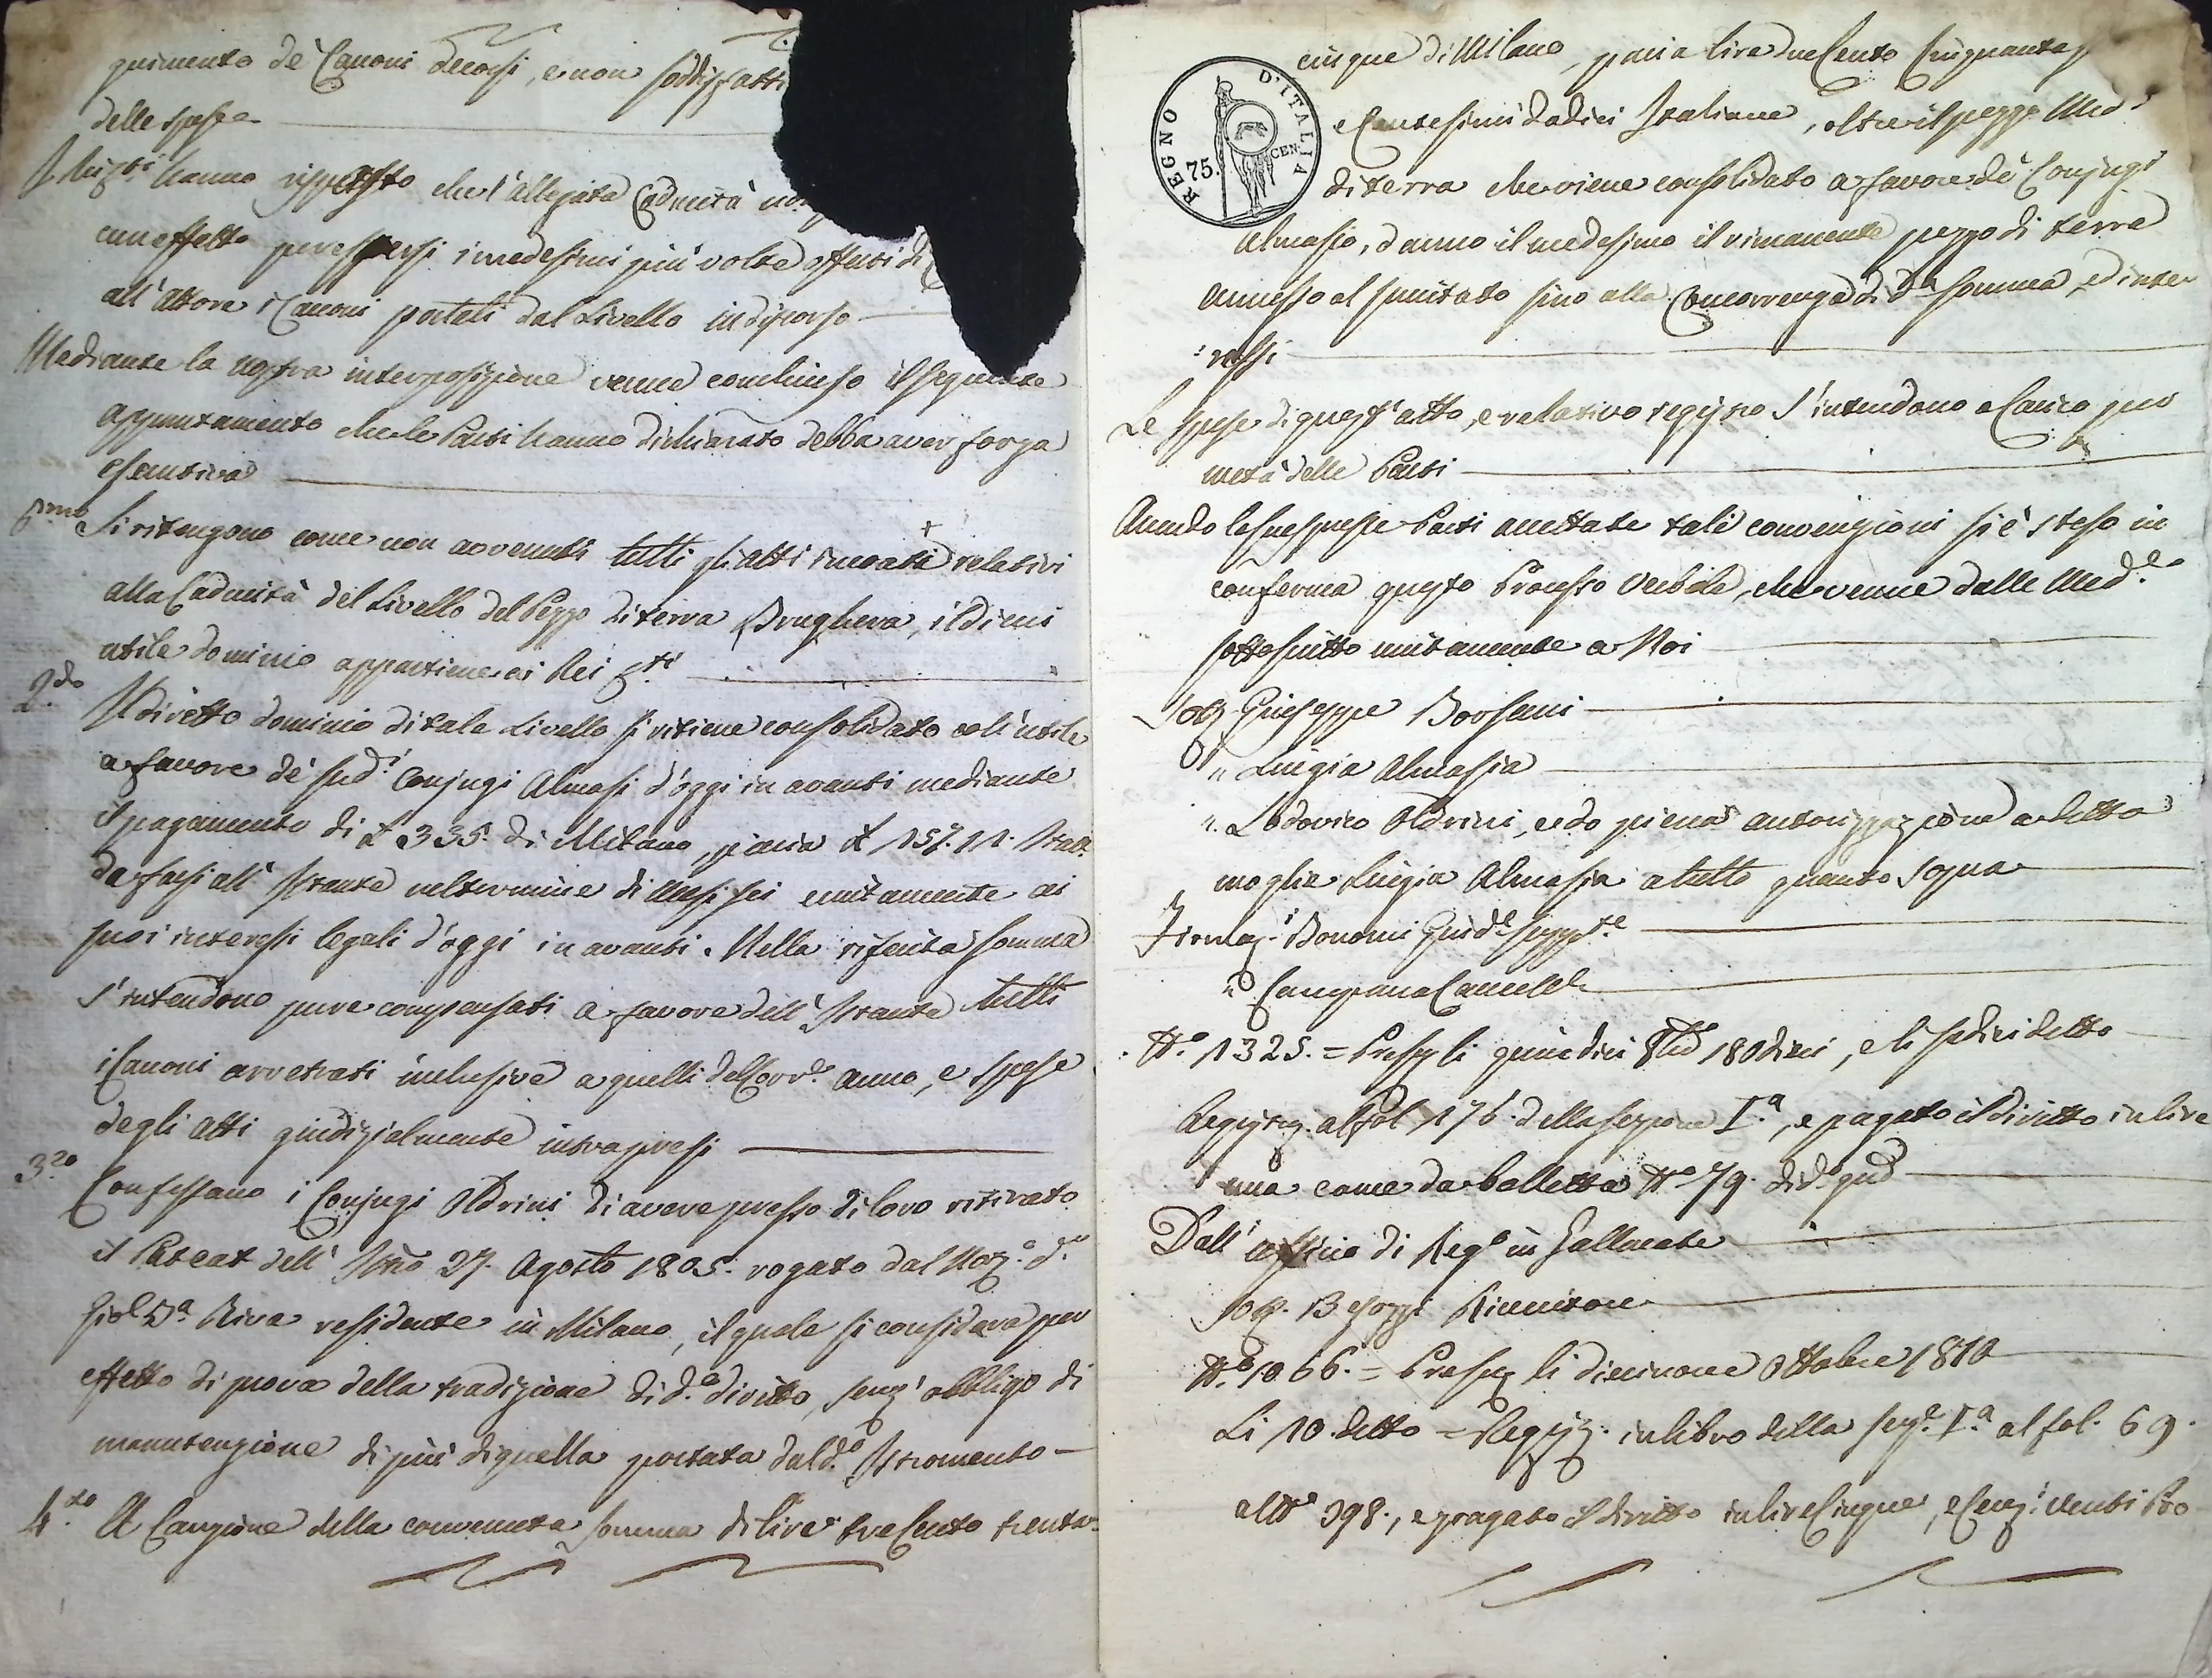 quimento de' Canoni decorsi, e non soddisfatti
delle spese
I Rei Cti hanno risposto che l'allegata Caducità non
cun effetto per essersi i medesimi più volte offerti di
all'Attore i Canoni portati dal Livello in discorso
Mediante la nostra interposizione venne conchiuso il seguente
appuntamento che le Parti hanno dichiarato debba aver forza
esecutiva
Pmo Si ritengono come non avvenuti tutti gli atti incoati relativi
alla Caducità del Livello del Pezzo di terra Brughera, il di cui
utile dominio appartiene ai Rei Cti
2do Il diretto dominio di tale Livello si ritiene consolidato coll'utile
a favore de' sudi Conjugi Almasi d'oggi in avanti mediante
il pagamento di £ 335. di Milano, pari a £ 257. 11. Itale
da farsi all'Istante nel termine di Mesi sei unitamente ai
suoi interessi legali d'oggi in avanti. Nella riferita somma
s'intendono pure compensati a favore dell'Istante tutti
i Canoni arretrati inclusive a quelli del Corre anno, e spese
degli Atti giudizialmente intrapresi
3zo Confessano i Conjugi Oldrini di avere presso di loro ritirato
il Pateat dell'Istro 27. Agosto 1805. rogato dal Not. Dr
Gio Ba Riva residente in Milano, il quale si considera per
effetto di prova della tradizione di do diritto, senz'obbligo di
manutenzione di più di quella portata dal do Istromento
4to A Cauzione della convenuta somma di lire trecento trenta
cinque di Milano, pari a lire duecento Cinquanta
e Centesimi dodici Italiane, oltre il pezzo Medo
di terra che viene consolidato a favore de' Conjugi
Almasio, danno il medesimo il rimanente pezzo di terra
annesso al sunitato sino alla Concorrenza di da somma, ed inte
:ressi
Le spese di quest'atto, e relativo registro s'intendono a Carico per
metà delle Parti
Avendo le suespresse Parti accettate tali convenzioni si è steso in
conferma questo Processo Verbale, che venne dalle Mede
sottoscritto unitamente a Noi
Sott. Giuseppe Borsani
" Luigia Almasia
" Lodovico Oldrini, e do piena autorizzazione a detta
moglie Luigia Almasia a tutto quanto sopra
Firmati Bonomi Giude Supple
" Campana Cancelle
No 1325. = Presg li quindici 8bre 180dieci, e li sedici detto
Registr. al fol 176. della sezione Ia, e pagato il diritto in lire
una come da bolletta No 79. di do gno
Dall'officio di Rego in Gallarate
Sott. Besozzi Ricevitore
No 1066. = Presg li diecinove Ottobre 1810
Li 10. detto = Registr. in libro della sezne Ia al fol. 69.
al No 398., e pagato il diritto in lire Cinque, e Cenzi venti tre
REGNO D'ITALIA
75. CEN.